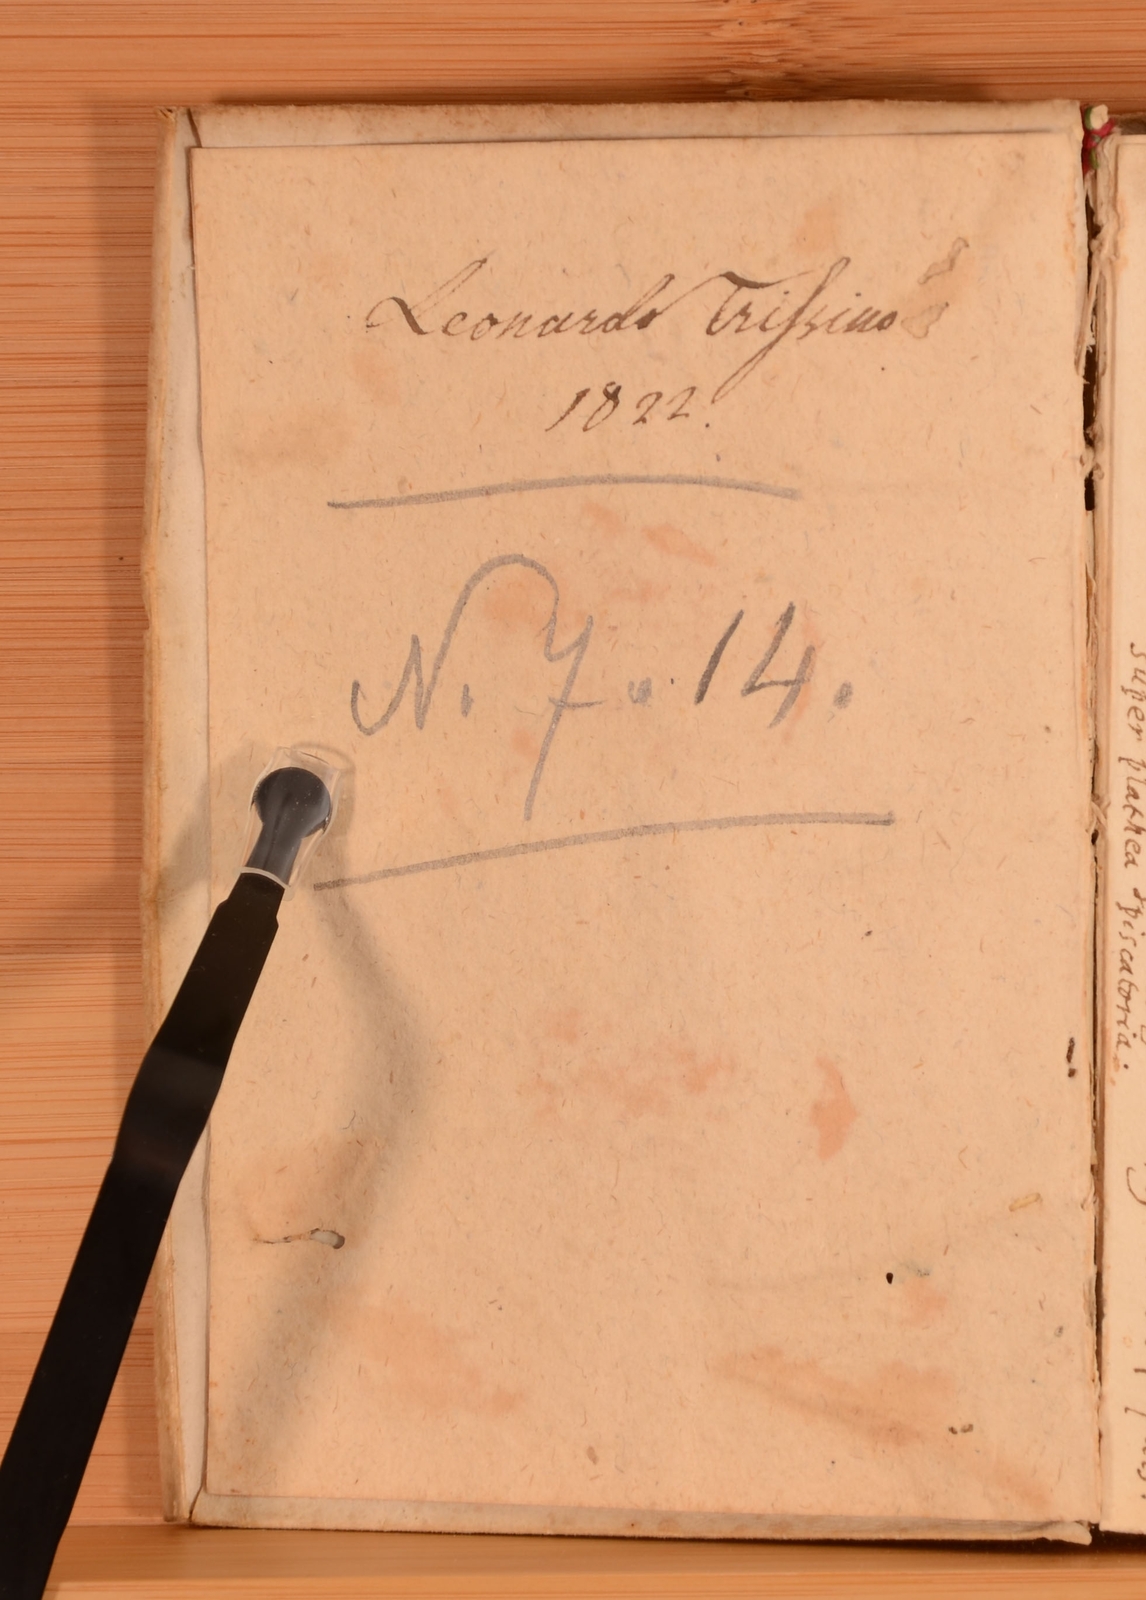 Leonardo Trissino
1822.
N. 7. 14.
super platea &piscatoria: